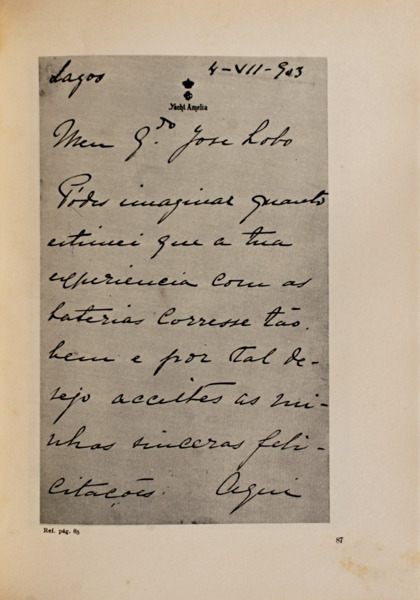 Lagos 4-VII-903
Yacht Amelia
Meu Q.do Jose Lobo
Pódes imaginar quanto
estimei que a tua
experiencia com as
baterias corresse tão
bem e por tal de-
sejo acceites as mi-
nhas sinceras feli-
citações. Aqui
Ref. pág. 85
87